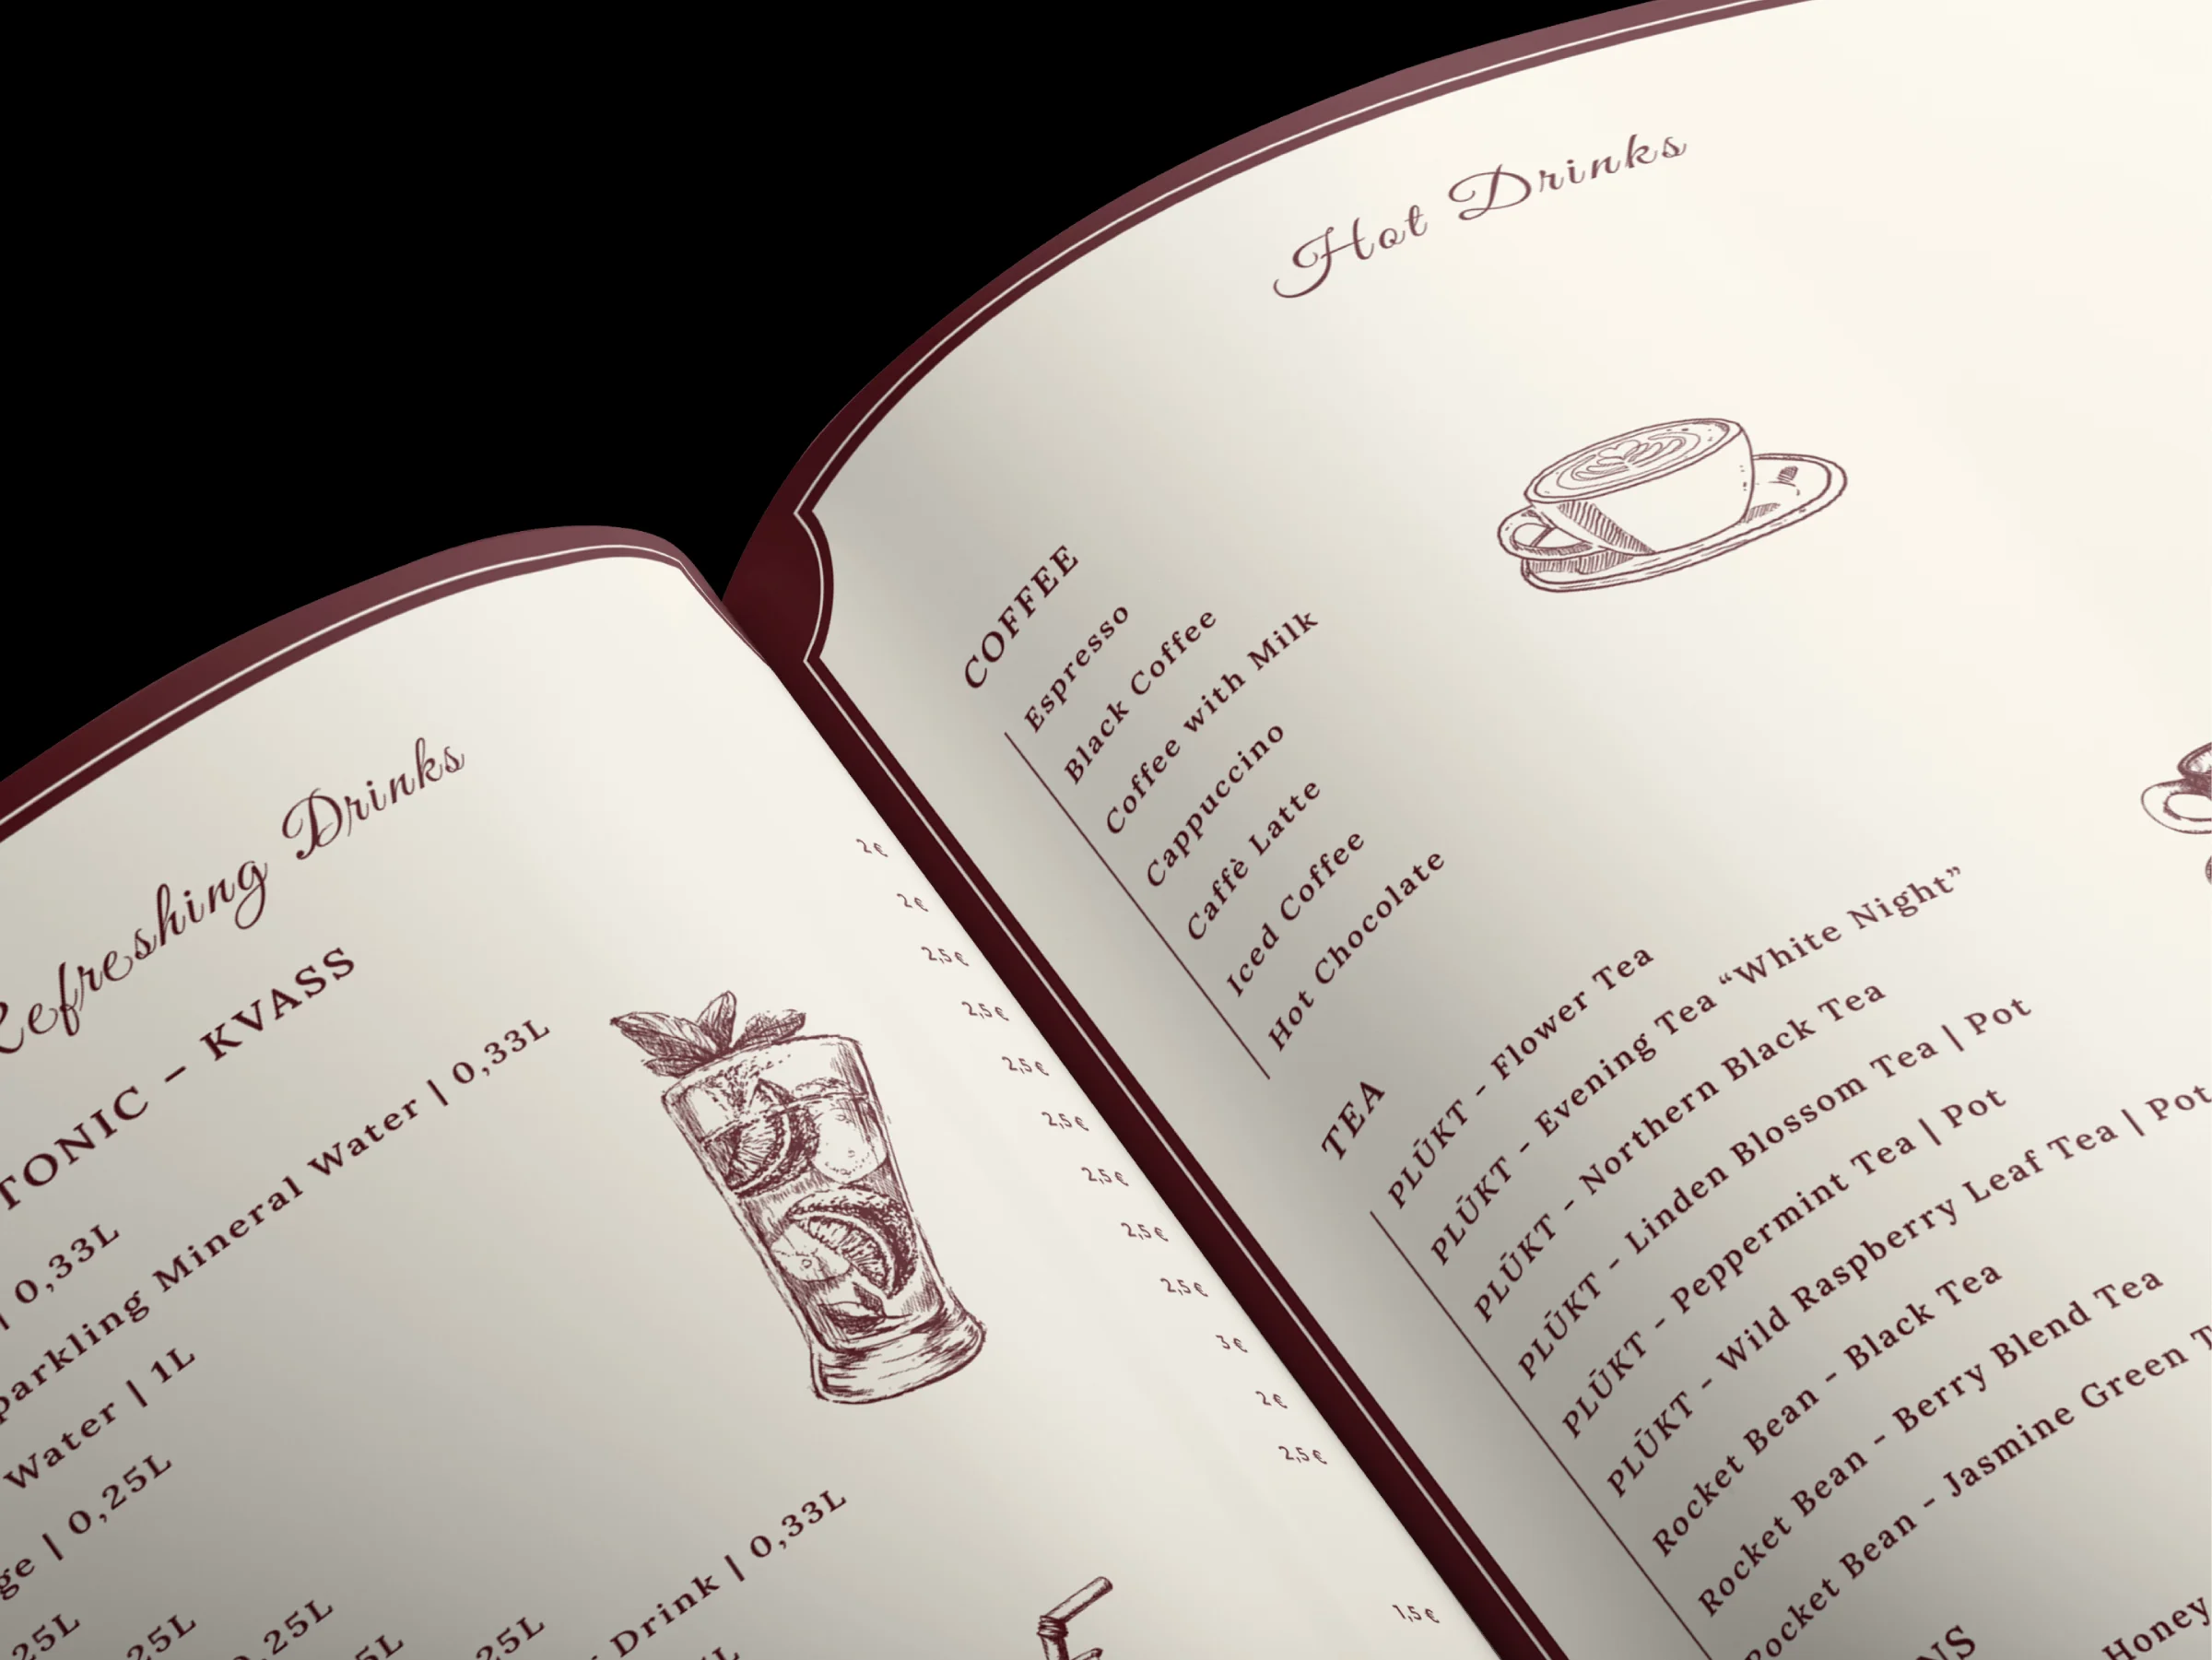 Refreshing Drinks
TONIC – KVASS
| 0,33L
Sparkling Mineral Water | 0,33L
Water | 1L
| 0,25L
25L
25L
0,25L
25L
Drink | 0,33L
2€
2€
2,5€
2,5€
2,5€
2,5€
2,5€
2,5€
2,5€
3€
2€
2,5€
1,5€
Hot Drinks
COFFEE
Espresso
Black Coffee
Coffee with Milk
Cappuccino
Caffè Latte
Iced Coffee
Hot Chocolate
TEA
PLŪKT – Flower Tea
PLŪKT – Evening Tea “White Night”
PLŪKT – Northern Black Tea
PLŪKT – Linden Blossom Tea | Pot
PLŪKT – Peppermint Tea | Pot
PLŪKT – Wild Raspberry Leaf Tea | Pot
Rocket Bean – Black Tea
Rocket Bean – Berry Blend Tea
Rocket Bean – Jasmine Green
Honey